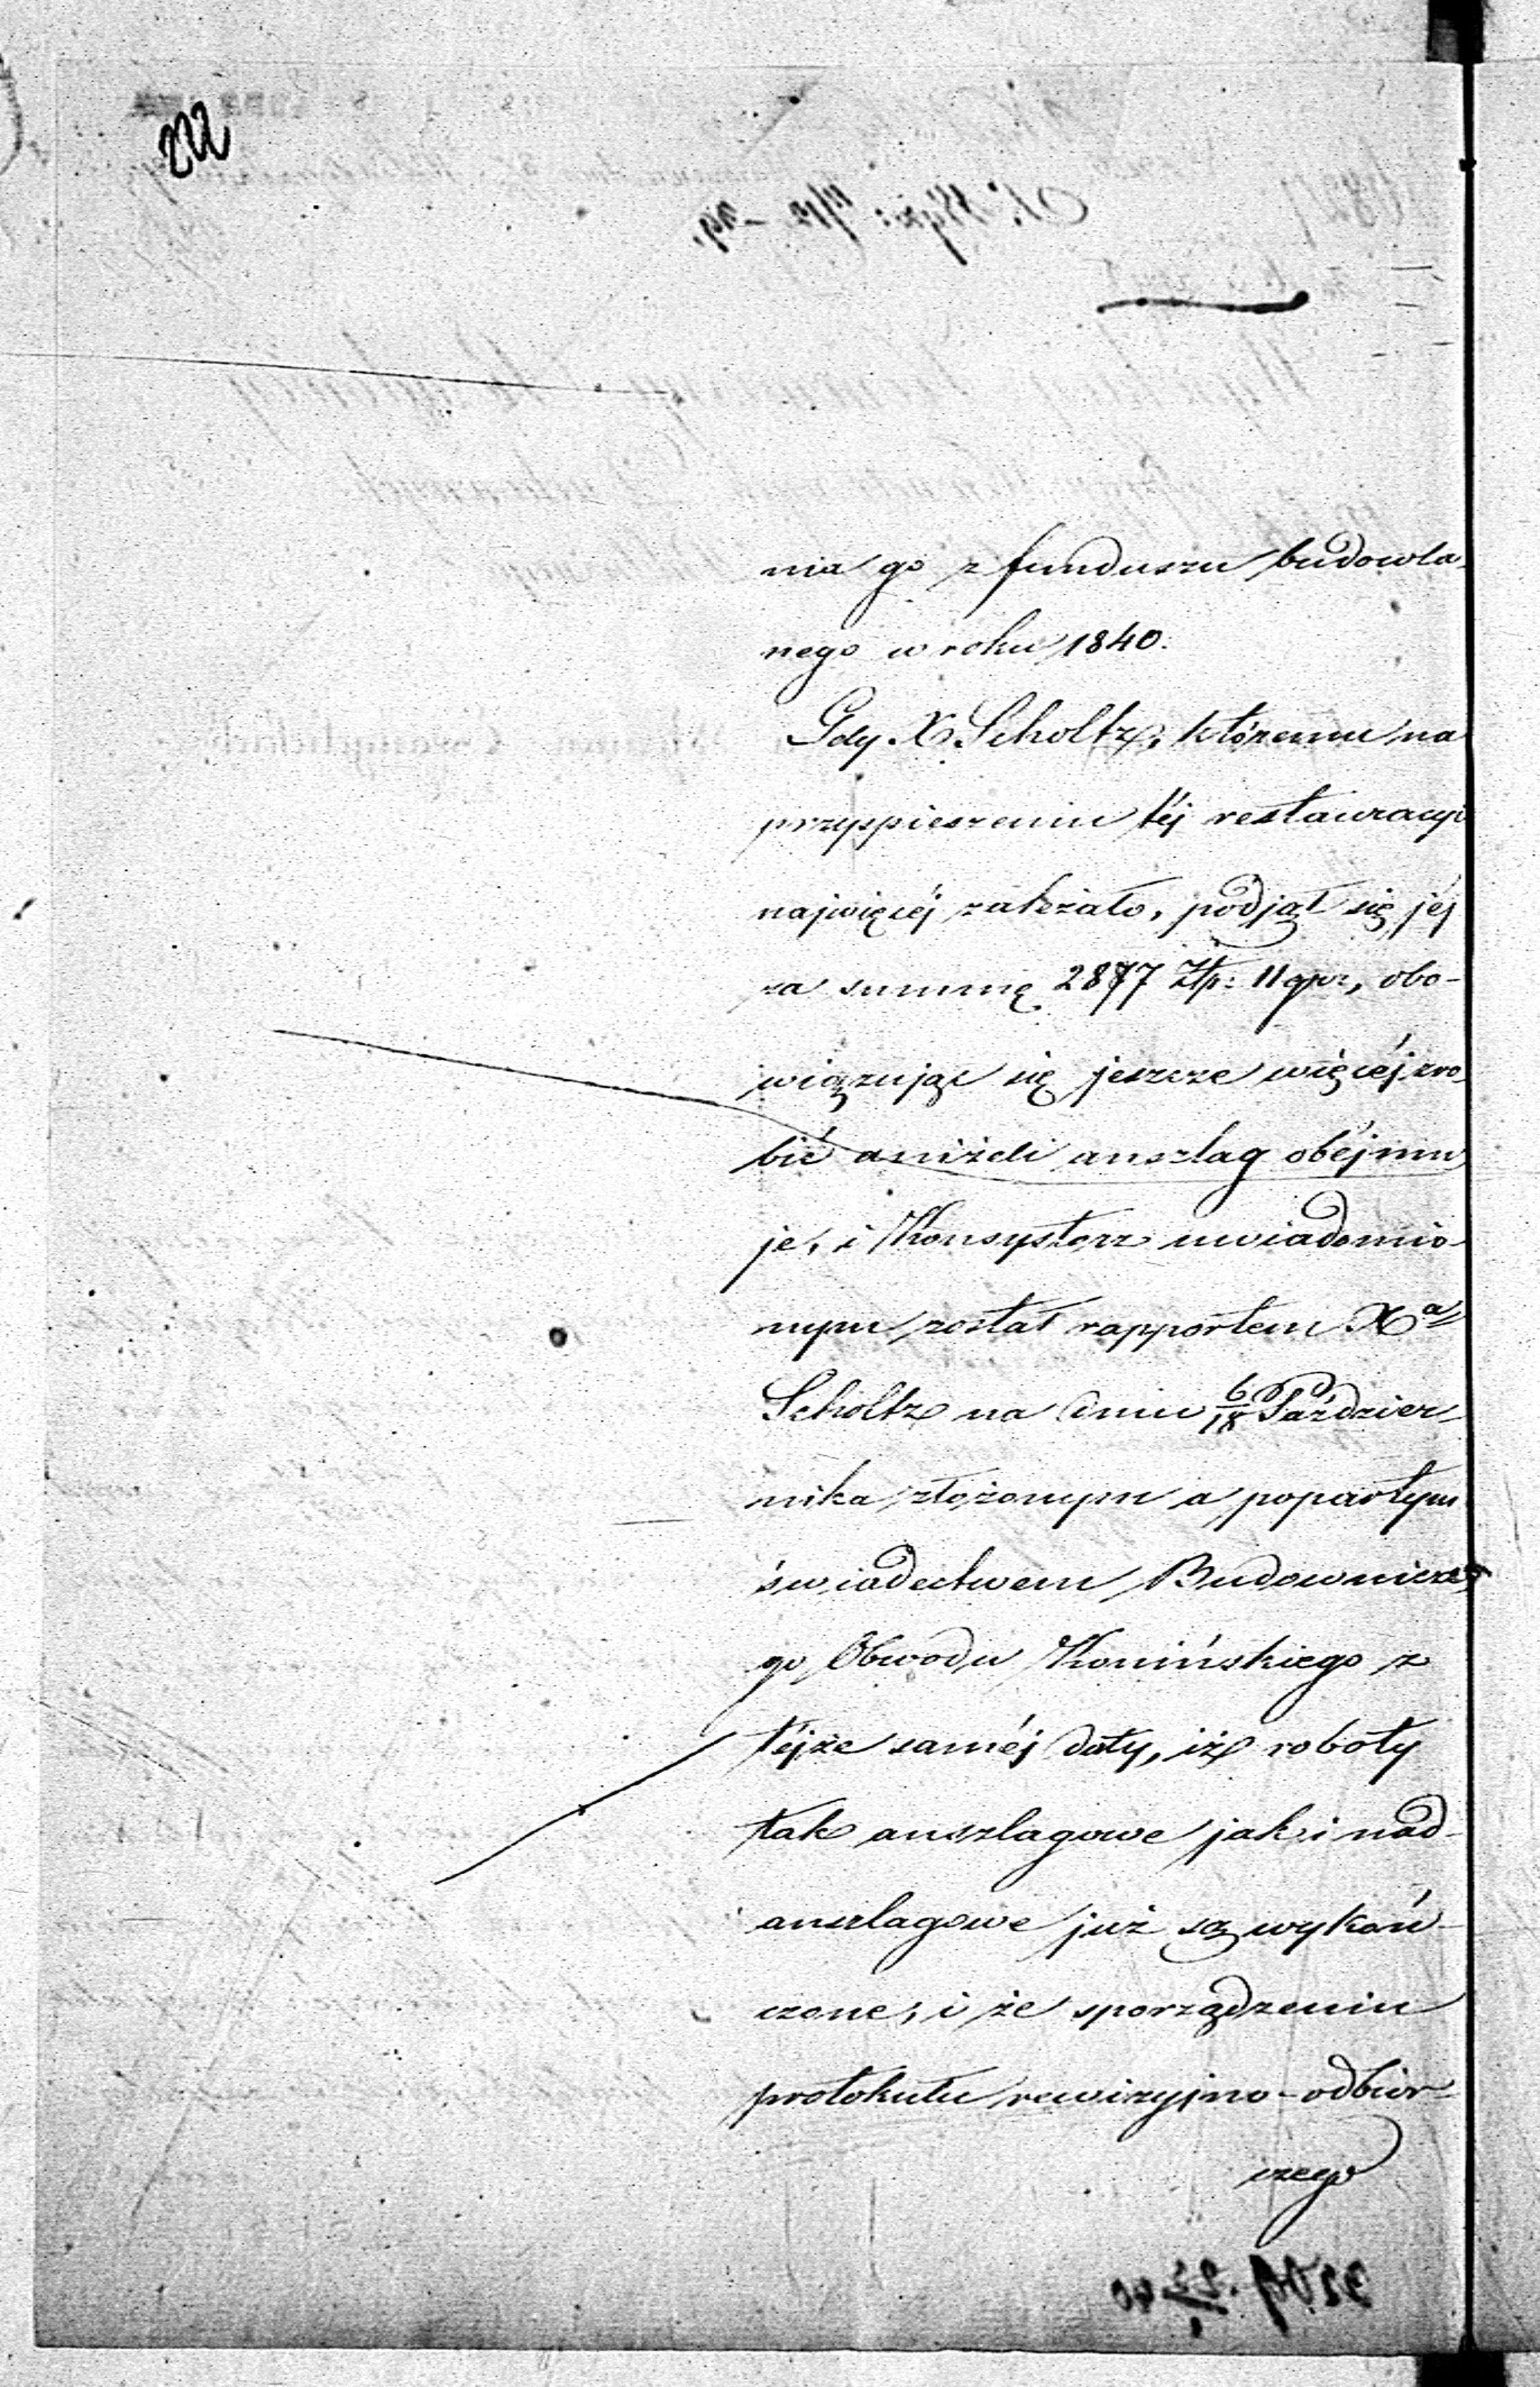 222
nia go z funduszu budowla-
nego w roku 1840.
Gdy X. Scholtz, któremu na
przyspieszeniu téj restauracyi
najwięcéj zależało, podjął się jéj
za summę 2877 Złp: 11 gr., obo-
wiązując się jeszcze więcéj zro-
bić aniżeli anszlag obéjmu-
je, i Konsystorz uwiadomio-
nym został rapportem Xa
Scholtz na dniu 6/18 Paździer-
nika złożonym a popartym
świadectwem Budownicze-
go Obwodu Konińskiego z
téjże saméj daty, iż roboty
tak anszlagowe jak i nad-
anszlagowe już są wykoń-
czone, i że sporządzeniu
protokułu rewizyjno-odbior-
czego